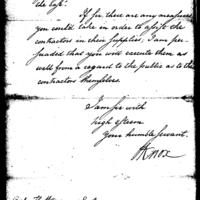 the last.
If Sir there are any measures
you could take in order to assist the
contractors in their Supplies, I am per-
suaded that you will execute them as
well from a regard to the public as to the
contractors themselves.
I am Sir with
high esteem
Your humble servant.
H Knox